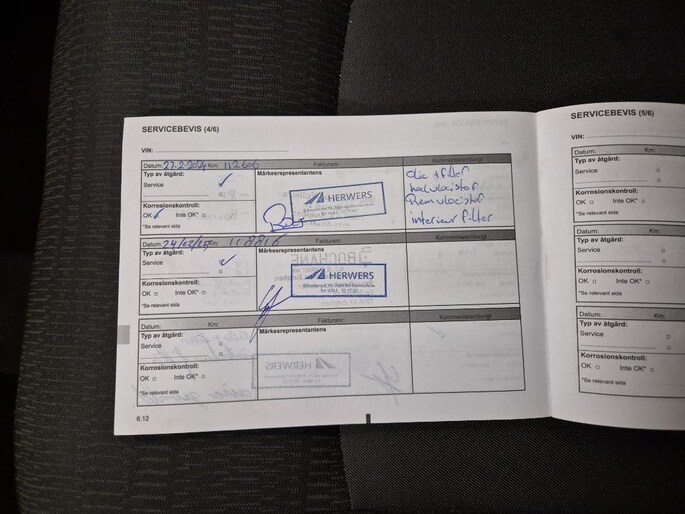 SERVICEBEVIS (4/6)
VIN:
Datum: 27-2-2024 Km: 112606 Fakturanr: Kommentarer/övrigt
Typ av åtgärd: Märkesrepresentantens
Service ✓
HERWERS
Korrosionskontroll:
OK ✓ Inte OK*
*Se relevant sida
olie + filter
koelvloeistof
Remvloeistof
interieur filter
Datum: 24/02/25 Km: 118816 Fakturanr: Kommentarer/övrigt
Typ av åtgärd: Märkesrepresentantens
Service ✓
HERWERS
Korrosionskontroll:
OK Inte OK*
*Se relevant sida
Datum: Km: Fakturanr: Kommentarer/övrigt
Typ av åtgärd: Märkesrepresentantens
Service
Korrosionskontroll:
OK Inte OK*
*Se relevant sida
6.12
SERVICEBEVIS (5/6)
VIN:
Datum:
Typ av åtgärd:
Service
Korrosionskontroll:
OK Inte OK*
*Se relevant sida
Datum:
Typ av åtgärd:
Service
Korrosionskontroll:
OK Inte OK*
*Se relevant sida
Datum:
Typ av åtgärd:
Service
Korrosionskontroll:
OK Inte OK*
*Se relevant sida